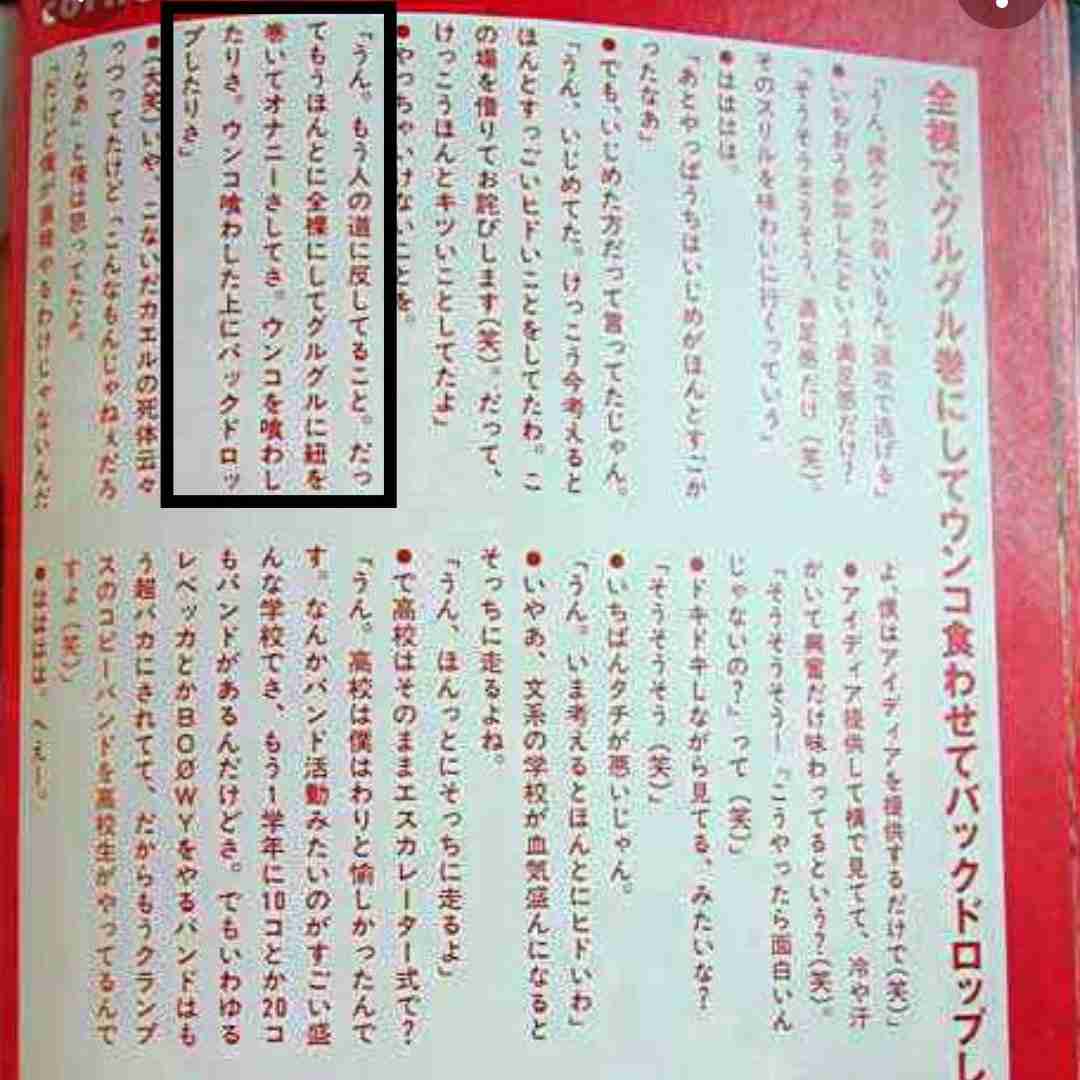 全裸でグルグル巻にしてウンコ食わせてバックドロップし
「うん。僕ケンカ弱いもん。速攻で逃げる」
●いちおう参加したという満足感だけ？
「そうそうそうそう。満足感だけ（笑）。
そのスリルを味わいに行くっていう」
●ははははは。
「あとやっぱうちはいじめがほんとすごか
ったなあ」
●でも、いじめた方だって言ってたじゃん。
「うん。いじめてた。けっこう今考えると
ほんとすっごいヒドいことをしてたわ。こ
の場を借りてお詫びします（笑）。だって、
けっこうほんとキツいことしてたよ」
●やっちゃいけないことを。
「うん。もう人の道に反してること。だっ
てもうほんとに全裸にしてグルグルに紐を
巻いてオナニーさしてさ。ウンコを喰わし
たりさ。ウンコ喰わした上にバックドロッ
プしたりさ」
●（大笑）いや、こないだカエルの死体云々
っつってたけど「こんなもんじゃねぇだろ
うなあ」と僕は思ってたよ。
「だけど僕が直接やるわけじゃないんだ
よ、僕はアイディアを提供するだけで（笑）」
●アイディア提供して横で見てて、冷や汗
かいて興奮だけ味わってるという？（笑）。
「そうそうそう！『こうやったら面白いん
じゃないの？』って（笑）」
●ドキドキしながら見てる、みたいな？
「そうそうそう（笑）」
●いちばんタチが悪いじゃん。
「うん。いま考えるとほんとにヒドいわ」
●いやあ、文系の学校が血気盛んになると
そっちに走るよね。
「うん、ほんっとにそっちに走るよ」
●で高校はそのままエスカレーター式で？
「うん。高校は僕はわりと愉しかったんで
す。なんかバンド活動みたいのがすごい盛
んな学校でさ、もう1学年に10コとか20コ
もバンドがあるんだけどさ。でもいわゆる
レベッカとかBOØWYをやるバンドはも
う超バカにされてて、だからもうクランプ
スのコピーバンドを高校生がやってるんで
すよ（笑）」
●はははは。へぇー。